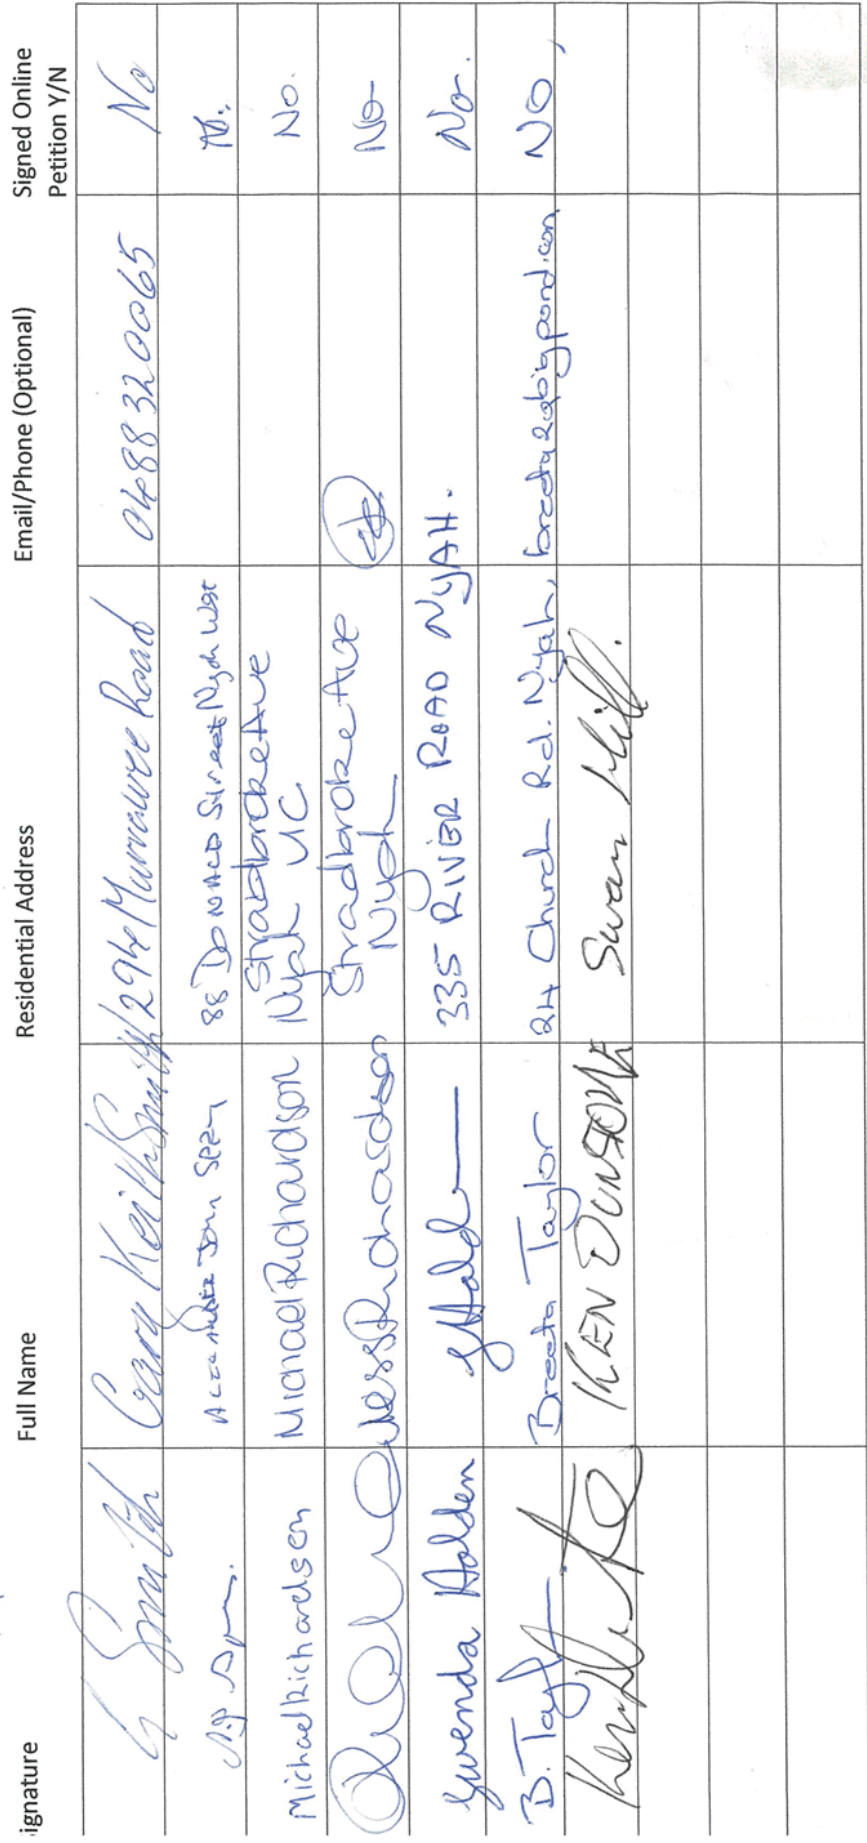 ignature Full Name Residential Address Email/Phone (Optional) Signed Online
Petition Y/N
G Smith Gary Keith Smith 294 Murrawee Road 0488320065 No
88 Donald Street Nyah West No.
Michael Richardson Michael Richardson Stradbroke Ave No.
Nyah VIC
Jess Richardson Stradbroke Ave No
Nyah
Gwenda Holden G Holden 335 RIVER ROAD NYAH. No.
B. Taylor Breeta Taylor 24 Church Rd. Nyah, NO,
KEN Swan Hill.